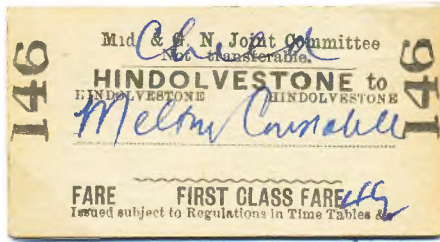 146
Mid. & G. N. Joint Committee
Not transferable.
HINDOLVESTONE to
HINDOLVESTONE HINDOLVESTONE
Melton Constable
FARE FIRST CLASS FARE
Issued subject to Regulations in Time Tables &c.
146